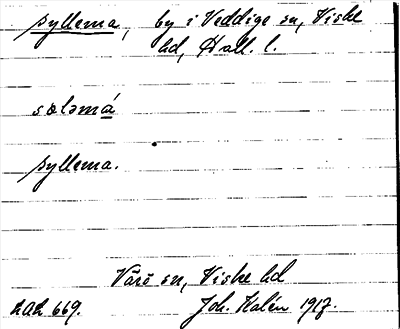 Syllema, by i Veddige sn, Viske
hd, Hall. l.
sœləmá
Syllema.
Värö sn, Viske hd
LAL 669. Joh. Kalén 1917.